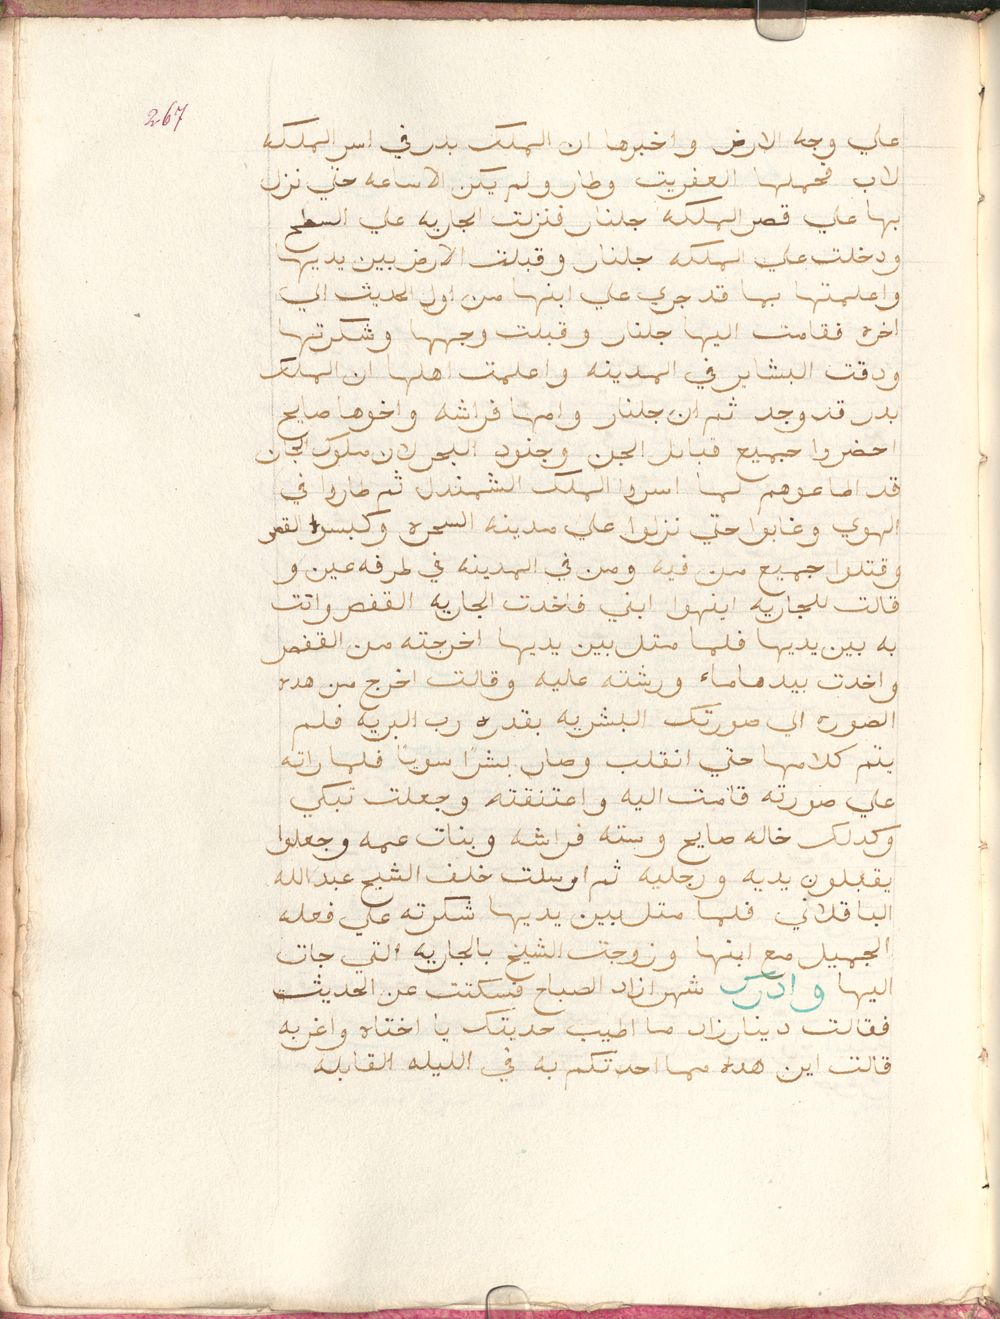 267
علي وجه الارض واخبرها ان الملك بدر في اسر الملكه
لاب فحملها العفريت وطار ولم يكن الا ساعه حتي نزل
بها علي قصر الملكه جلنار فنزلت الجاريه علي السطح
ودخلت علي الملكه جلنار وقبلت الارض بين يديها
واعلمتها بما قد جري علي ابنها من اول الحديث الي
اخره فقامت اليها جلنار وقبلت وجهها وشكرتها
ودقت البشاير في المدينه واعلمت اهلها ان الملك
بدر قد وجد ثم ان جلنار وامها فراشه واخوها صايح
احضروا جميع قبايل الجن وجنود البحر لان ملوك الجان
قد اطاعوهم لما اسروا الملك الشمندل ثم طاروا في
الهوي وغابوا حتي نزلوا علي مدينه السحره وكبسوا القصر
وقتلوا جميع من فيه ومن في المدينه في طرفه عين و
قالت للجاريه اينهوا ابني فاخدت الجاريه القفص واتت
به بين يديها فلما متل بين يديها اخرجته من القفص
واخدت بيدها ماء ورشته عليه وقالت اخرج من هده
الصوره الي صورتك البشريه بقدره رب البريه فلم
يتم كلامها حتي انقلب وصار بشرًا سويًا فلما راته
علي صورته قامت اليه واعتنقته وجعلت تبكي
وكدلك خاله صايح وسته فراشه وبنات عمه وجعلوا
يقبلون يديه ورجليه ثم ارسلت خلف الشيح عبد الله
الباقلاني فلما متل بين يديها شكرته علي فعله
الجميل مع ابنها وزوجت الشيخ بالجاريه التي جات
اليها وادرك شهرازاد الصباح فسكتت عن الحديث
فقالت دينارزاد ما اطيب حديتك يا اختاه واغربه
قالت اين هده مما احدتكم به في الليله القابله